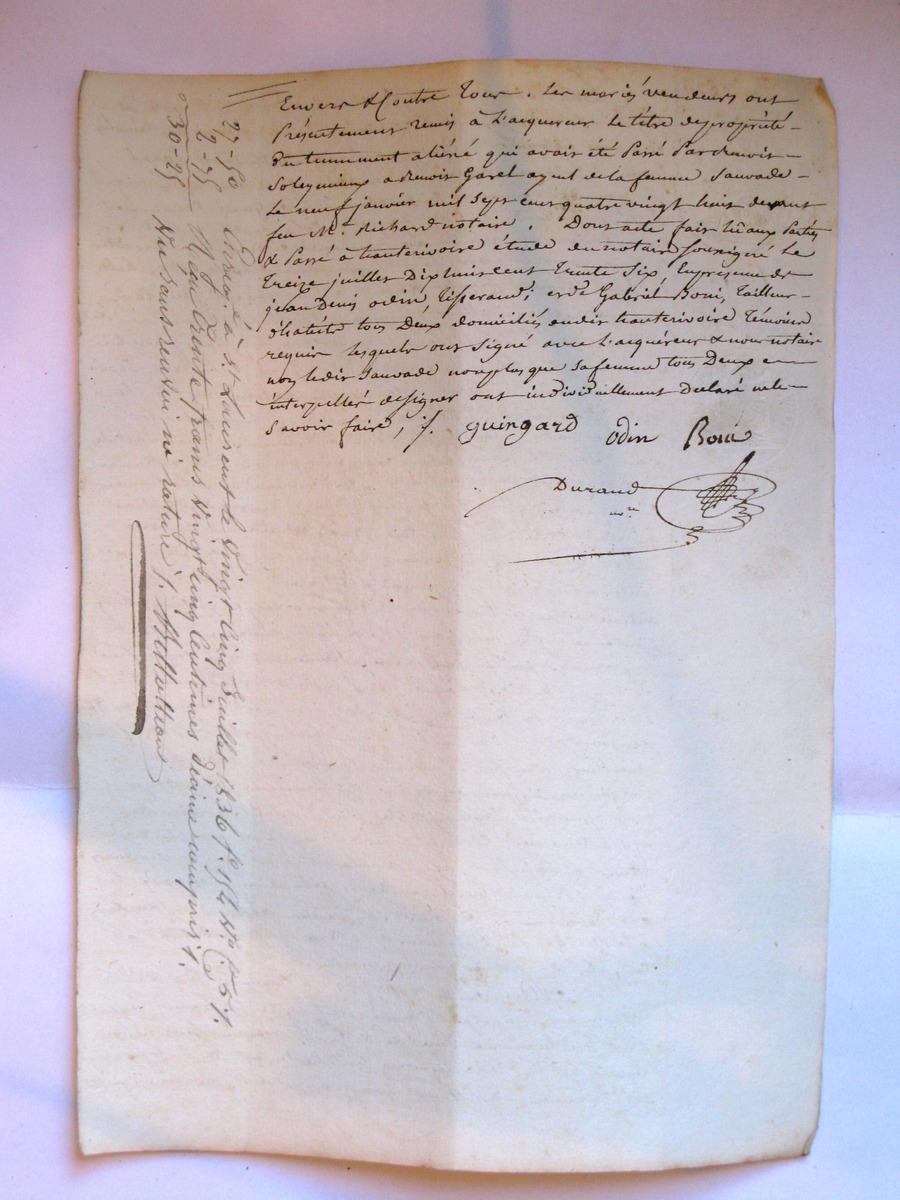 Envers & Contre Tous. Les mariés vendeurs ont
Présentement remis à L'acquereur Le titre de propriété
Du tennement aliéné qui avait été Passé Par Benoit
Soleymieux a Benoit Garel ayeul de la femme Sauvade
Le neuf janvier mil Sept cent quatre vingt huit devant
feu Me Richard notaire. Dont acte fait lû aux Parties
& Passé à hauterivoire étude du notaire Soussigné Le
Treize juillet Dix huit cent Trente Six, En présence de
jean Denis odin, Tisserand; et de Gabriel Boni, Tailleur
d'habits tous Deux domiciliés audit hauterivoire Témoins
requis lesquels ont Signé avec L'acquéreur & nous notaire
non ledit Sauvade non plus que Sa femme tous Deux
interpellés de Signer ont individuellement Déclaré ne le
Savoir faire, ./.
guingard odin Boni
Durand
nre
27-50
2-75
30-25
Enreg. à St Laurent le Vingt cinq Juillet 1836 fo 154 Vo
Reçu Trente francs Vingt cinq Centimes décime compris ./.
Vu sans renvoi ni rature ./.